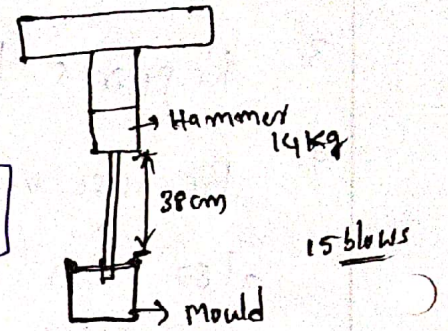 Hammer
14 Kg
38 cm
15 blows
Mould